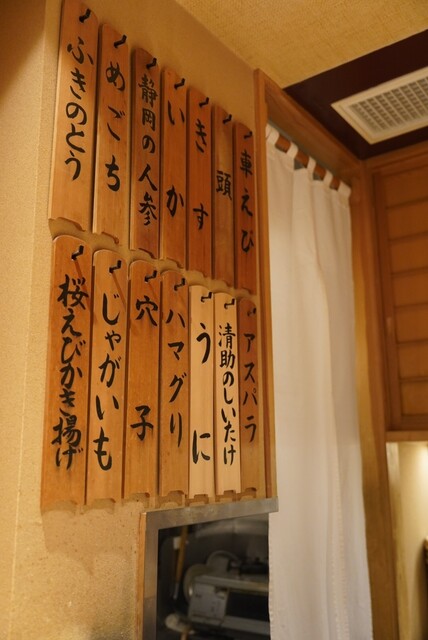 車えび
頭
きす
いか
静岡の人参
めごち
ふきのとう
アスパラ
清助のしいたけ
うに
ハマグリ
穴子
じゃがいも
桜えびかき揚げ